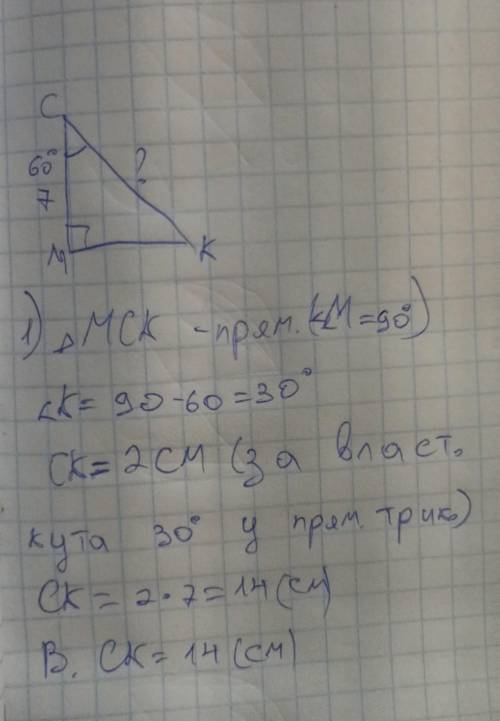 C
60°
7
?
M
K
1) △MCK - прям. (∠M=90°)
∠K= 90-60=30°
CK=2CM (за власт.
кута 30° у прям. трик.)
CK=2·7=14(см)
В. CK=14(см)